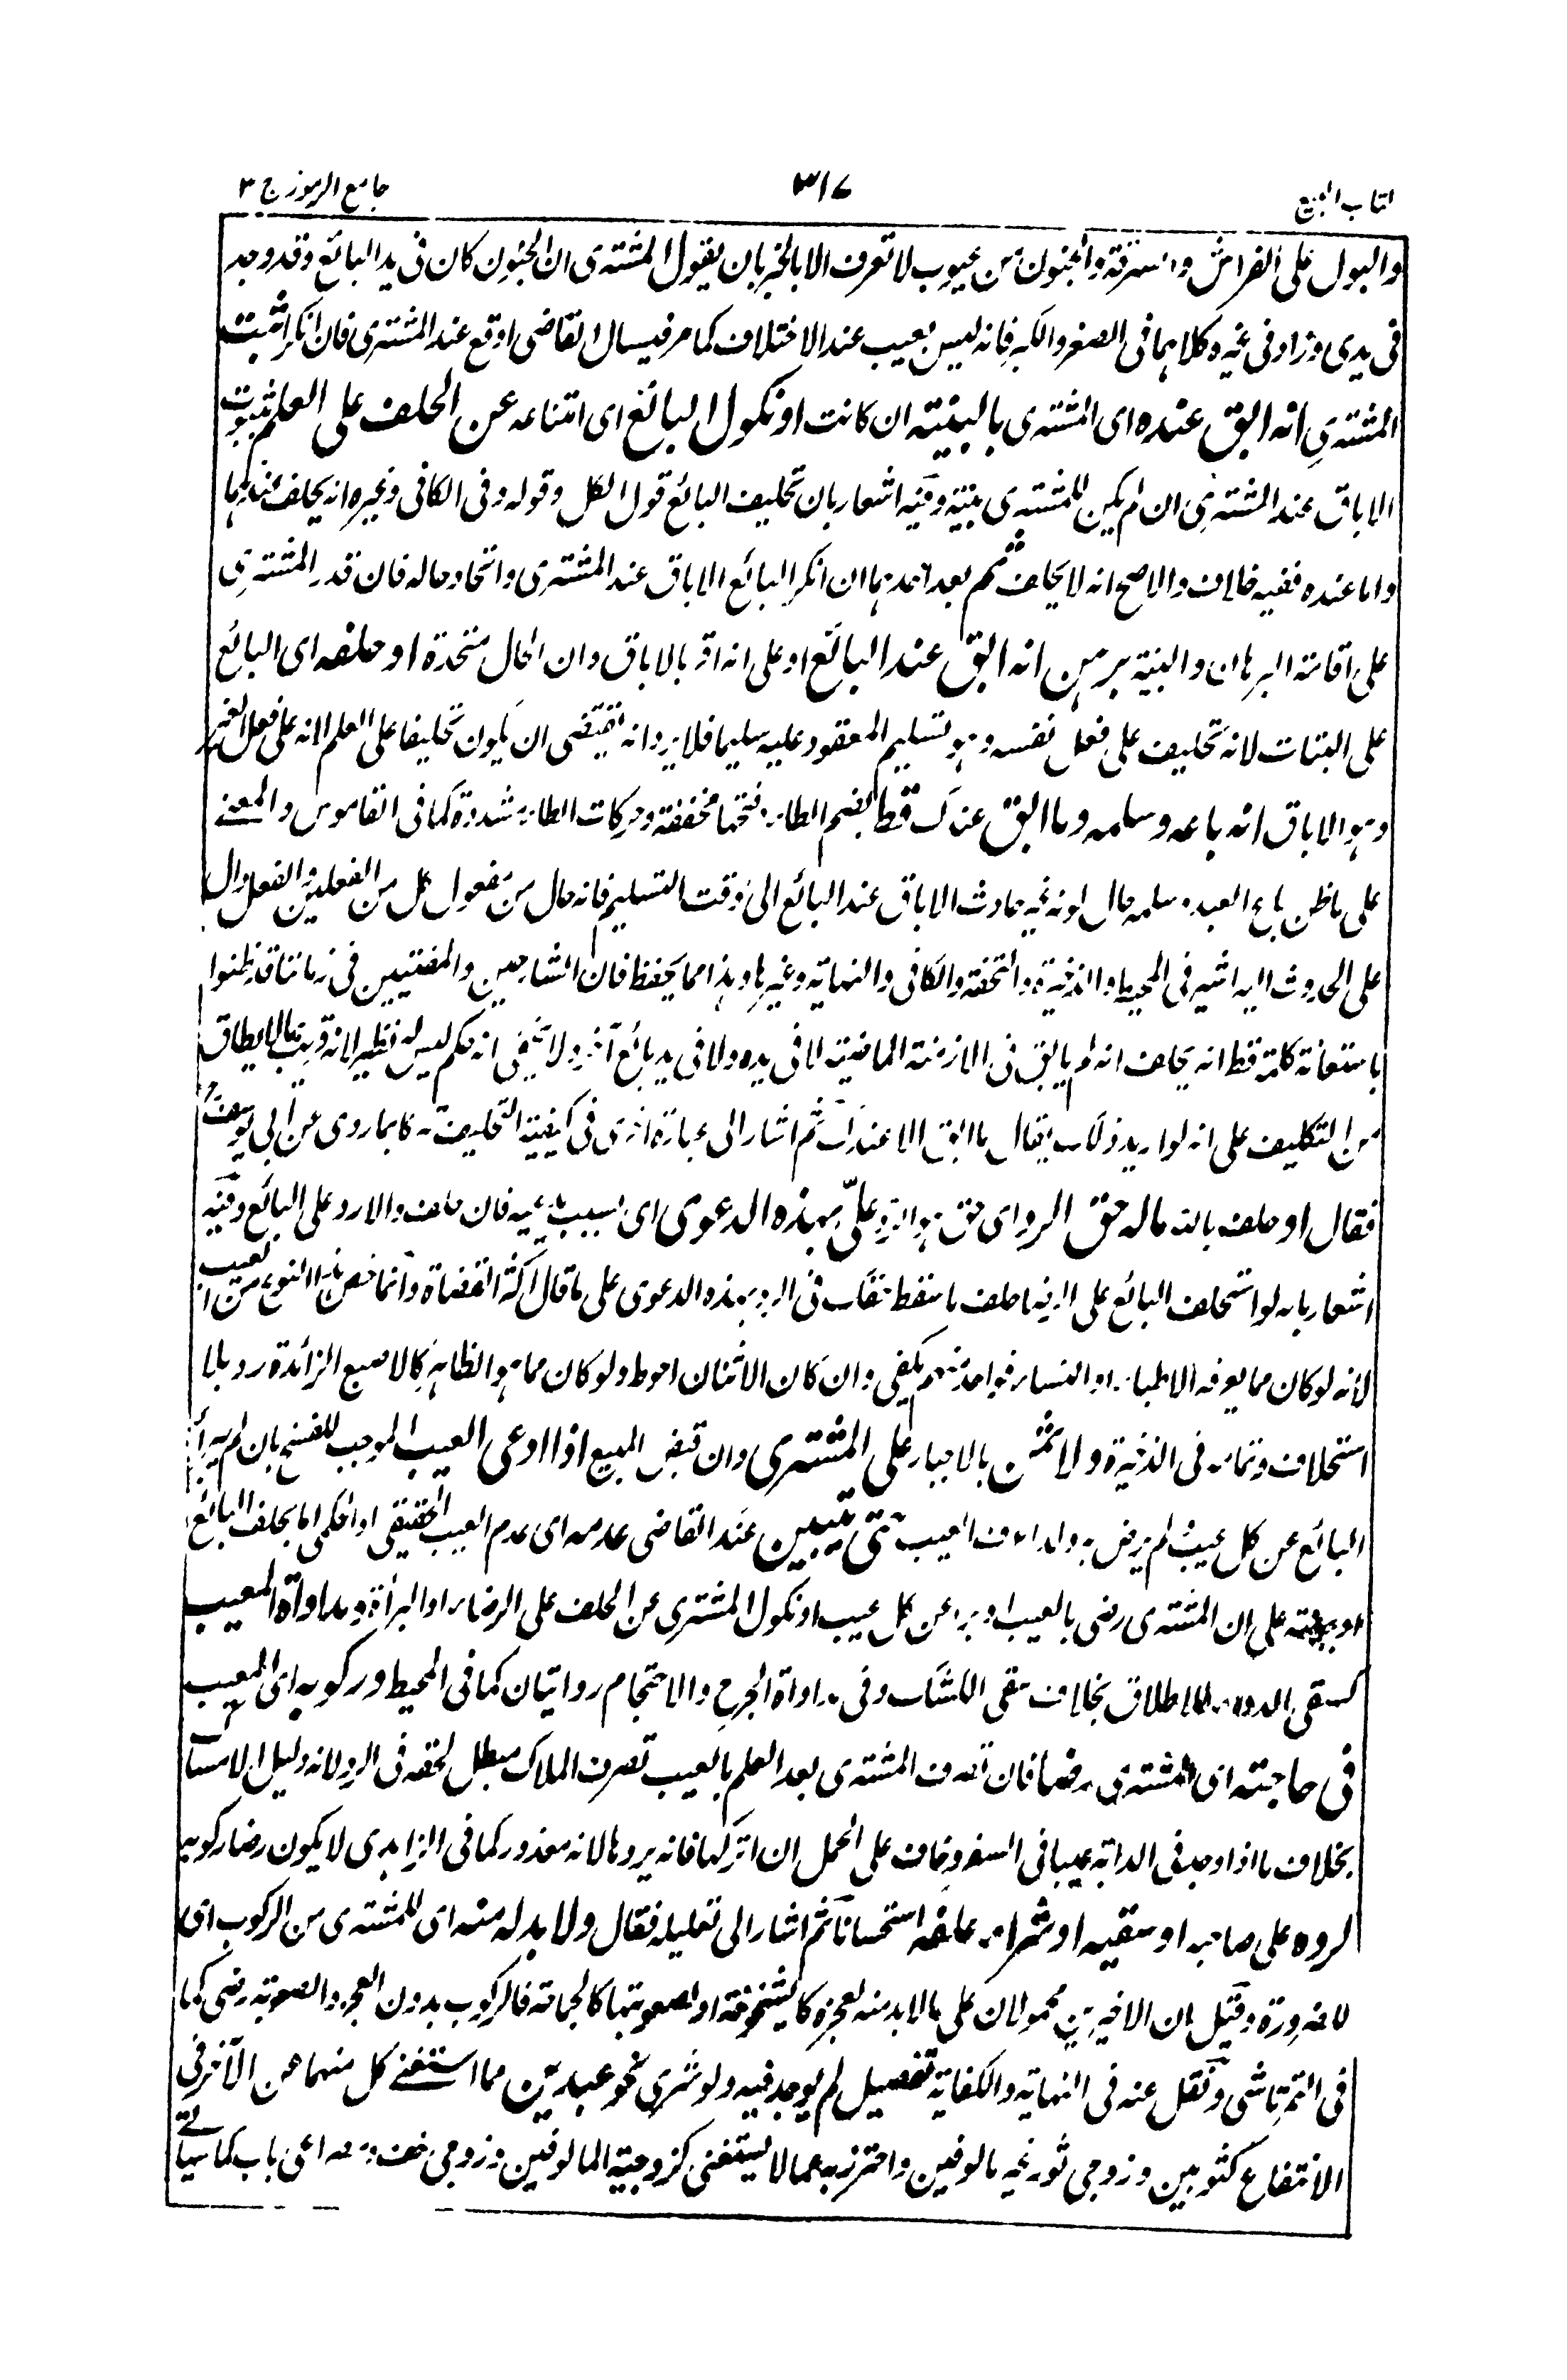 كتاب البيع ٣١٧ جامع الرموز ج ٣
والبول على الفراش والسرقة والجنون من عيوب لا تعرف الا بالخبر بان يقول المشترى ان الجنون كان فى يد البائع وقد وجد
فى يدى وزاد فى غيره وكلاهما فى الصغر والكبر فانه ليس بعيب عند الاختلاف كما مر فيسال القاضى اوقع عند المشترى فان انكر اثبت
المشترى انه ابق عنده اى المشترى بالبينة ان كانت او نكول البائع اى امتناعه عن الحلف على العلم ثبوت
الاباق عند المشترى ان لم يكن للمشترى بينة وفيه اشعار بان تحليف البائع قول الكل وقوله وفى الكافى وغيره انه يحلف عندهما
واما عنده ففيه خلاف والاصح انه لا يحلف ثم بعد احدهما ان انكر البائع الاباق عند المشترى واتحاد حاله فان قدر المشترى
على اقامة البرهان والبينة برهن انه ابق عند البائع او على انه اقر بالاباق وان الحال متحدة او حلفه اى البائع
على البتات لانه تحليف على فعل نفسه وهو تسليم المعقود عليه سليما فلا يرد انه يقتضى ان يكون تحليفا على العلم لانه على فعل الغير
وهو الاباق انه باعه وسلمه وما ابق عندك قط بضم الطاء وفتحها مخففة وحركات الطاء مشددة كما فى القاموس والمعنے
على ما ظن باع العبد وسلمه حال كونه غير حادث الاباق عند البائع الى وقت التسليم فانه حال من مفعول كل من الفعلين والفعل دال
على الحدوث اليه اشير فى المحيط والذخيرة والتحفة والكافى والنهاية وغيرها وهذا مما يحفظ فان الشارحين والمفتيين فى زماننا قد ظنوا
باستعانة كلمة قط انه يحلف انه لم يابق فى الازمنة الماضية لا فى يده ولا فى يد بائع آخر ولا يخفى انه حكم ليس له نظير لانه قريب بما لا يطاق
من التكليف على انه لو اريد ذلك يقال ما ابق الا عندك ثم اشار الى عبارة اخرى فى كيفية التحليف كما روى عن ابى يوسف
فقال او حلف بالله ماله حق الرد اى حق هو الرد علىّ بهذه الدعوى اى بسبب عيب فان حلف والا رد على البائع وفيه
اشعار بانه لو استحلف البائع على الرد ما حلف ما سقط حقك فى الرد بهذه الدعوى على ما قال اكثر القضاة وانما خص هذا النوع من العيب
لانه لو كان مما يعرفه الاطباء او النساء فواحد منهم يكفى وان كان الاثنان احوط ولو كان مما هو الظاهر كالاصبع الزائدة رد بلا
استحلاف وتمامه فى الذخيرة ولا ثمن بالاجبار على المشترى وان قبض المبيع اذا ادعى العيب الموجب للفسخ بان لم يبرأ
البائع عن كل عيب لم يرض به ولم يعرف العيب حتى يتبين عند القاضى عدمه اى عدم العيب الحقيقى او الحكمى اما بحلف البائع
او بينته على ان المشترى رضى بالعيب او برء عن كل عيب او نكول المشترى عن الحلف على الرضاء او البرأة ومداواة المعيب
كسقى الدواء للاطلاق بخلاف سقى الكشك وفى مداواة الجرح والاحتجام روايتان كما فى المحيط وركوبه اى المعيب
فى حاجته اى المشترى رضا فان تصرف المشترى بعد العلم بالعيب تصرف الملاك مبطل لحقه فى الرد لانه دليل الامساك
بخلاف ما اذا وجد فى الدابة عيبا فى السفر وخاف على الحمل ان تركها فانه يردها لانه معذور كما فى الزاهدى لا يكون رضا ركوبه
لرده على صاحبه او سقيه او شراء علفه استحسانا ثم اشار الى تعليله فقال ولا بد له منه اى للمشترى من الركوب اى
لا ضرورة وقيل ان الاخيرين محمولان على ما لا بد منه لعجزه كالشيخوخة او لصعوبتها كالجماحة فالركوب بدون العجز والصعوبة رضى كما
فى التمرتاشى ونقل عنه فى النهاية والكفاية تفصيل لم يوجد فيه ولو شرى نحو عبدين مما استغنے كل منهما عن الآخر فى
الانتفاع كثوبين وزوجى ثور غير مالوفين واحترز به عما لا يستغنى كزوجية المالوفين وزوجى خف ومصراعى باب كما سياتے